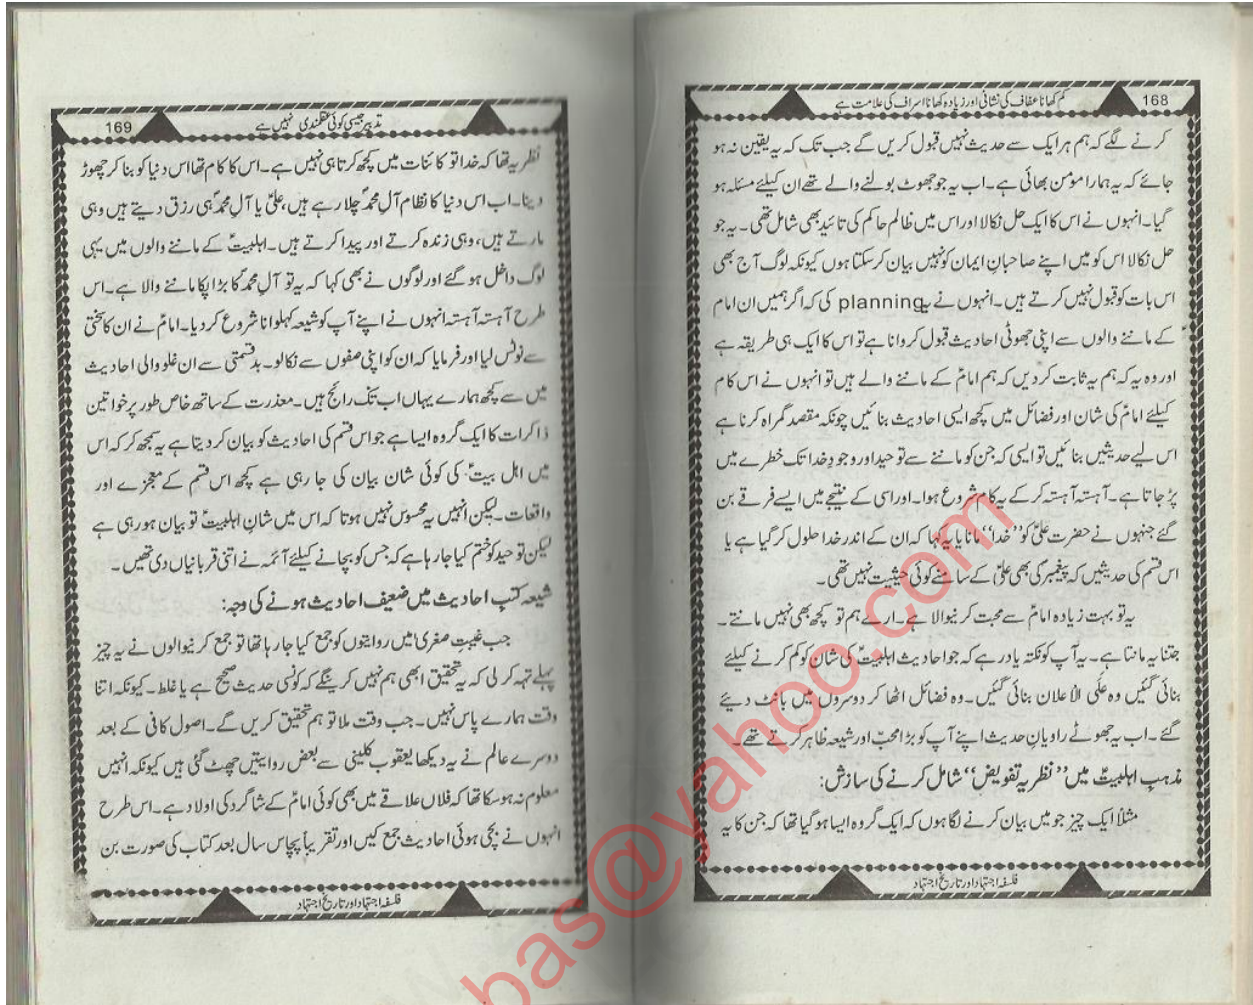 168
کم کھانا عفاف کی نشانی اور زیادہ کھانا اسراف کی علامت ہے
کرنے لگے کہ ہم ہر ایک سے حدیث نہیں قبول کریں گے جب تک کہ یہ یقین نہ ہو
جائے کہ یہ ہمارا مومن بھائی ہے۔ اب یہ جو جھوٹ بولنے والے تھے ان کیلئے مسئلہ ہو
گیا۔ انہوں نے اس کا ایک حل نکالا اور اس میں ظالم حاکم کی تائید بھی شامل تھی۔ یہ جو
حل نکالا اس کو میں اپنے صاحبانِ ایمان کو نہیں بیان کرسکتا ہوں کیونکہ لوگ آج بھی
اس بات کو قبول نہیں کرتے ہیں۔ انہوں نے یہ planning کی کہ اگر ہمیں ان امام
ؑ کے ماننے والوں سے اپنی جھوٹی احادیث قبول کروانا ہے تو اس کا ایک ہی طریقہ ہے
اور وہ یہ کہ ہم یہ ثابت کر دیں کہ ہم امامؑ کے ماننے والے ہیں تو انہوں نے اس کام
کیلئے امامؑ کی شان اور فضائل میں کچھ ایسی احادیث بنائیں چونکہ مقصد گمراہ کرنا ہے
اس لیے حدیثیں بنائیں تو ایسی کہ جن کو ماننے سے توحید اور وجودِ خدا تک خطرے میں
پڑ جاتا ہے۔ آہستہ آہستہ کرکے یہ کام شروع ہوا۔ اور اسی کے نتیجے میں ایسے فرقے بن
گئے جنہوں نے حضرت علیؑ کو ’’خدا‘‘ مانا یا یہ کہا کہ ان کے اندر خدا حلول کر گیا ہے یا
اس قسم کی حدیثیں کہ پیغمبرؐ کی بھی علیؑ کے سامنے کوئی حیثیت نہیں تھی۔
یہ تو بہت زیادہ امامؑ سے محبت کرنیوالا ہے۔ ارے ہم تو کچھ بھی نہیں مانتے۔
جتنا یہ مانتا ہے۔ یہ آپ کو نکتہ یاد رہے کہ جو احادیث اہلبیتؑ کی شان کو کم کرنے کیلئے
بنائی گئیں وہ عَلَی الاعلان بنائی گئیں۔ وہ فضائل اٹھا کر دوسروں میں بانٹ دیئے
گئے۔ اب یہ جھوٹے راویانِ حدیث اپنے آپ کو بڑا محب اور شیعہ ظاہر کرتے تھے۔
مذہب اہلبیتؑ میں ’’نظریہ تفویض‘‘ شامل کرنے کی سازش:
مثلاً ایک چیز جو میں بیان کرنے لگا ہوں کہ ایک گروہ ایسا ہو گیا تھا کہ جن کا یہ
فلسفہ اجتہاد اور تاریخ اجتہاد
169
تدبیر جیسی کوئی عقلمندی نہیں ہے
نظریہ تھا کہ خدا تو کائنات میں کچھ کرتا ہی نہیں ہے۔ اس کا کام تھا اس دنیا کو بنا کر چھوڑ
دینا۔ اب اس دنیا کا نظام آلِ محمدؐ چلا رہے ہیں، علیؑ یا آلِ محمدؐ ہی رزق دیتے ہیں وہی
مارتے ہیں، وہی زندہ کرتے اور پیدا کرتے ہیں۔ اہلبیتؑ کے ماننے والوں میں یہی
لوگ داخل ہوگئے اور لوگوں نے بھی کہا کہ یہ تو آلِ محمدؐ کا بڑا پکا ماننے والا ہے۔ اس
طرح آہستہ آہستہ انہوں نے اپنے آپ کو شیعہ کہلوانا شروع کر دیا۔ امامؑ نے ان کا سختی
سے نوٹس لیا اور فرمایا کہ ان کو اپنی صفوں سے نکالو۔ بدقسمتی سے ان غلو والی احادیث
میں سے کچھ ہمارے یہاں اب تک رائج ہیں۔ معذرت کے ساتھ خاص طور پر خواتین
ذاکرات کا ایک گروہ ایسا ہے جو اس قسم کی احادیث کو بیان کر دیتا ہے یہ سمجھ کر کہ اس
میں اہل بیتؑ کی کوئی شان بیان کی جا رہی ہے کچھ اس قسم کے معجزے اور
واقعات۔ لیکن انہیں یہ محسوس نہیں ہوتا کہ اس میں شانِ اہلبیتؑ تو بیان ہو رہی ہے
لیکن توحید کو ختم کیا جا رہا ہے کہ جس کو بچانے کیلئے آئمہ نے اتنی قربانیاں دی تھیں۔
شیعہ کتبِ احادیث میں ضعیف احادیث ہونے کی وجہ:
جب غیبتِ صغریٰ میں روایتوں کو جمع کیا جا رہا تھا تو جمع کرنیوالوں نے یہ چیز
پہلے تہہ کر لی کہ یہ تحقیق ابھی ہم نہیں کرینگے کہ کونسی حدیث صحیح ہے یا غلط۔ کیونکہ اتنا
وقت ہمارے پاس نہیں۔ جب وقت ملا تو ہم تحقیق کریں گے۔ اصول کافی کے بعد
دوسرے عالم نے یہ دیکھا یعقوب کلینی سے بعض روایتیں چھٹ گئی ہیں کیونکہ انہیں
معلوم نہ ہو سکا تھا کہ فلاں علاقے میں بھی کوئی امامؑ کے شاگرد کی اولاد ہے۔ اس طرح
انہوں نے بچی ہوئی احادیث جمع کیں اور تقریباً پچاس سال بعد کتاب کی صورت بن
فلسفہ اجتہاد اور تاریخ اجتہاد
bas@yahoo.com